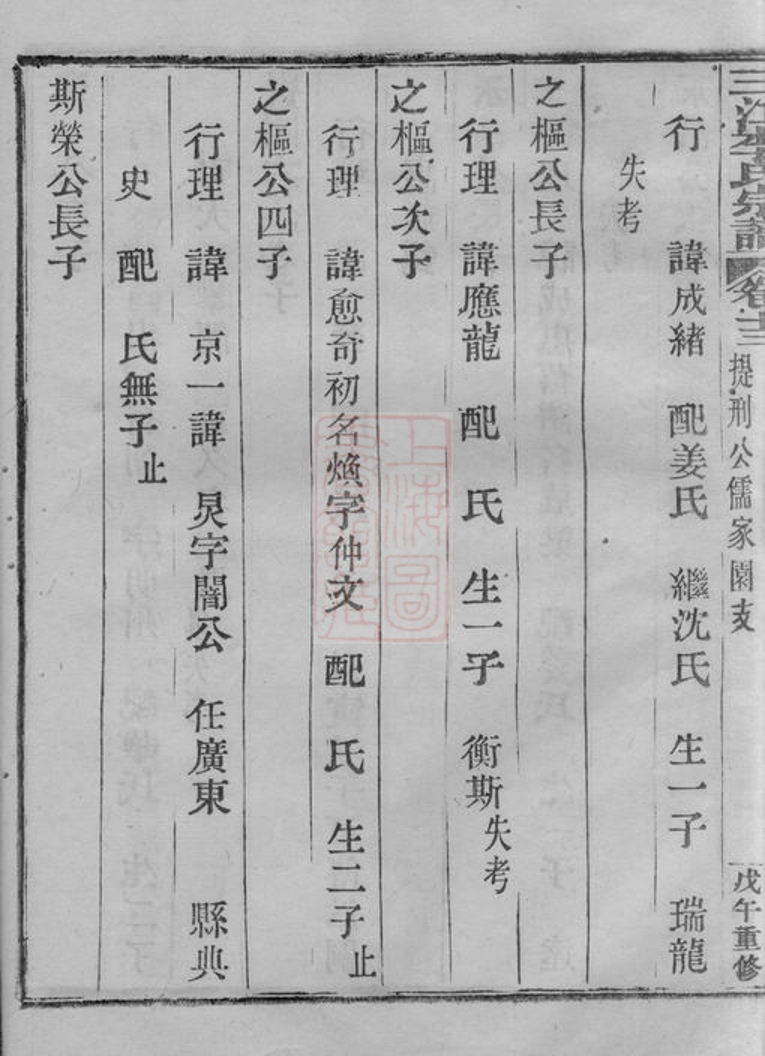 三江李氏宗譜 卷十三 提刑公儒家園支 戊午重修
行 諱成緒 配姜氏 繼沈氏 生一子 瑞龍
失考
之樞公長子
行理 諱應龍 配 氏 生一子 衡斯失考
之樞公次子
行理 諱愈奇初名煥字仲文 配 氏 生二子止
之樞公四子
行理 諱 京一諱 炅字闇公 任廣東 縣典
史 配 氏無子止
斯榮公長子
上海圖